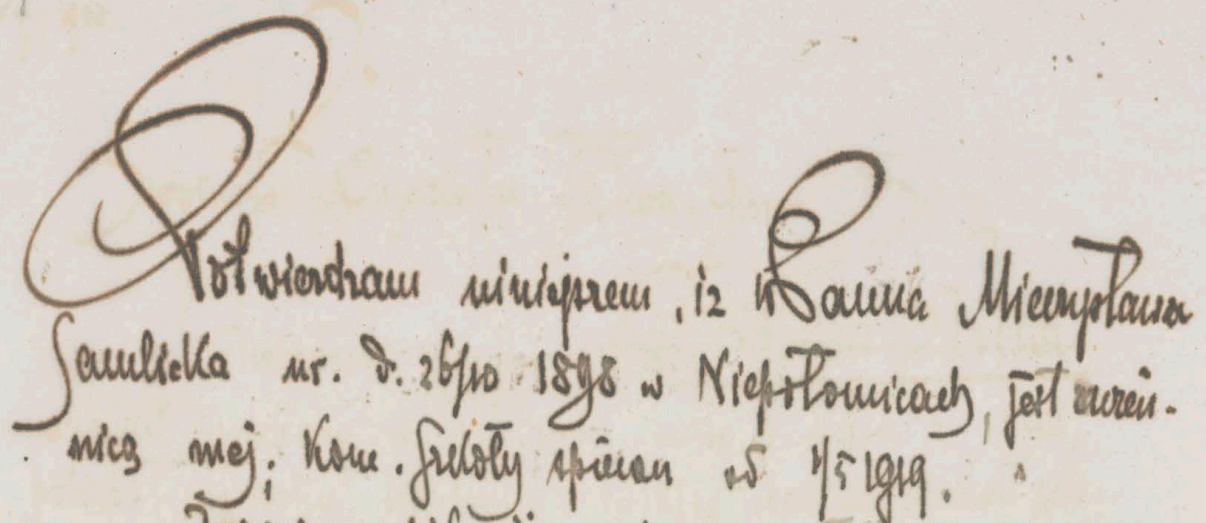 Potwierdzam niniejszem, iz Panna Mieczysława
Jamlicka ur. d. 26/10 1898 w Niepołomicach, jest uczen-
nicą mej, kom. Szkoły śpiewu od 1/5 1919.